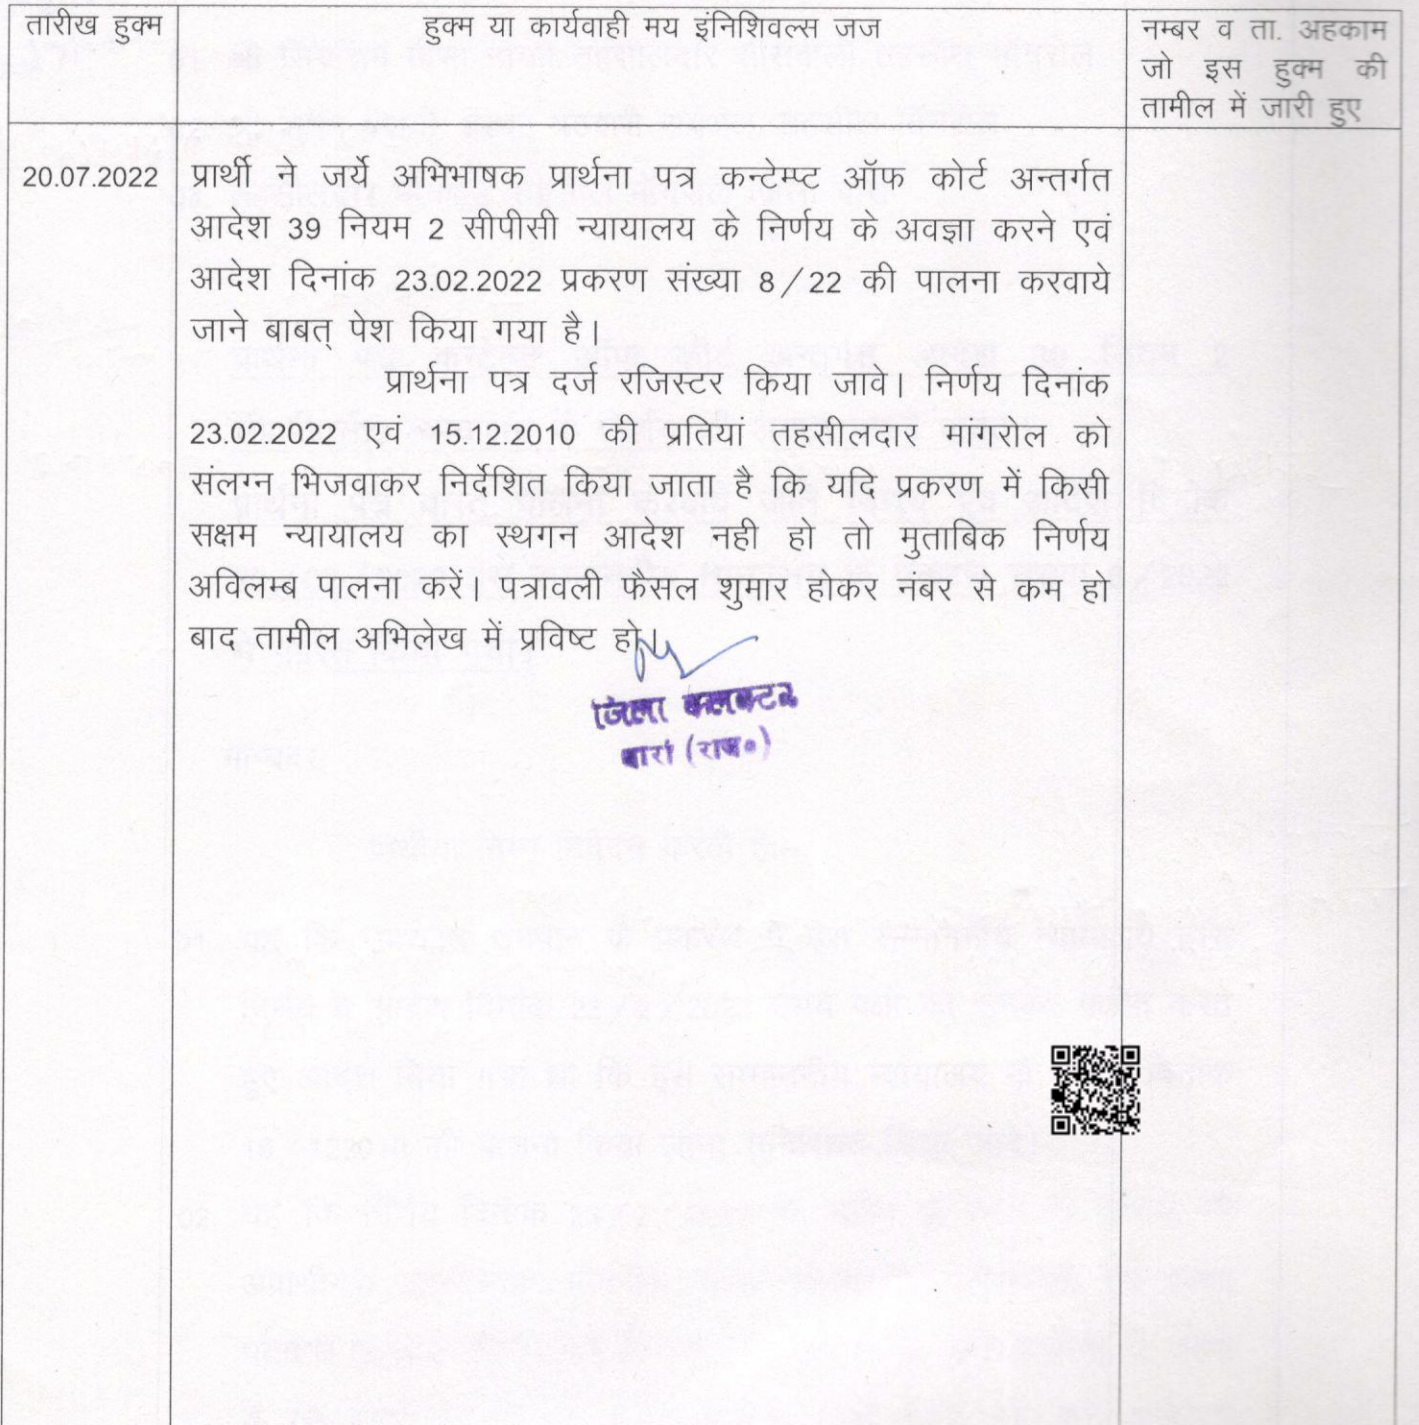 तारीख हुक्म
हुक्म या कार्यवाही मय इंनिशिवल्स जज
नम्बर व ता. अहकाम
जो इस हुक्म की
तामील में जारी हुए
20.07.2022
प्रार्थी ने जर्ये अभिभाषक प्रार्थना पत्र कन्टेम्प्ट ऑफ कोर्ट अन्तर्गत
आदेश 39 नियम 2 सीपीसी न्यायालय के निर्णय के अवज्ञा करने एवं
आदेश दिनांक 23.02.2022 प्रकरण संख्या 8/22 की पालना करवाये
जाने बाबत् पेश किया गया है।
प्रार्थना पत्र दर्ज रजिस्टर किया जावे। निर्णय दिनांक
23.02.2022 एवं 15.12.2010 की प्रतियां तहसीलदार मांगरोल को
संलग्न भिजवाकर निर्देशित किया जाता है कि यदि प्रकरण में किसी
सक्षम न्यायालय का स्थगन आदेश नही हो तो मुताबिक निर्णय
अविलम्ब पालना करें। पत्रावली फैसल शुमार होकर नंबर से कम हो
बाद तामील अभिलेख में प्रविष्ट हो।
जिला कलक्टर
बारां (राज०)